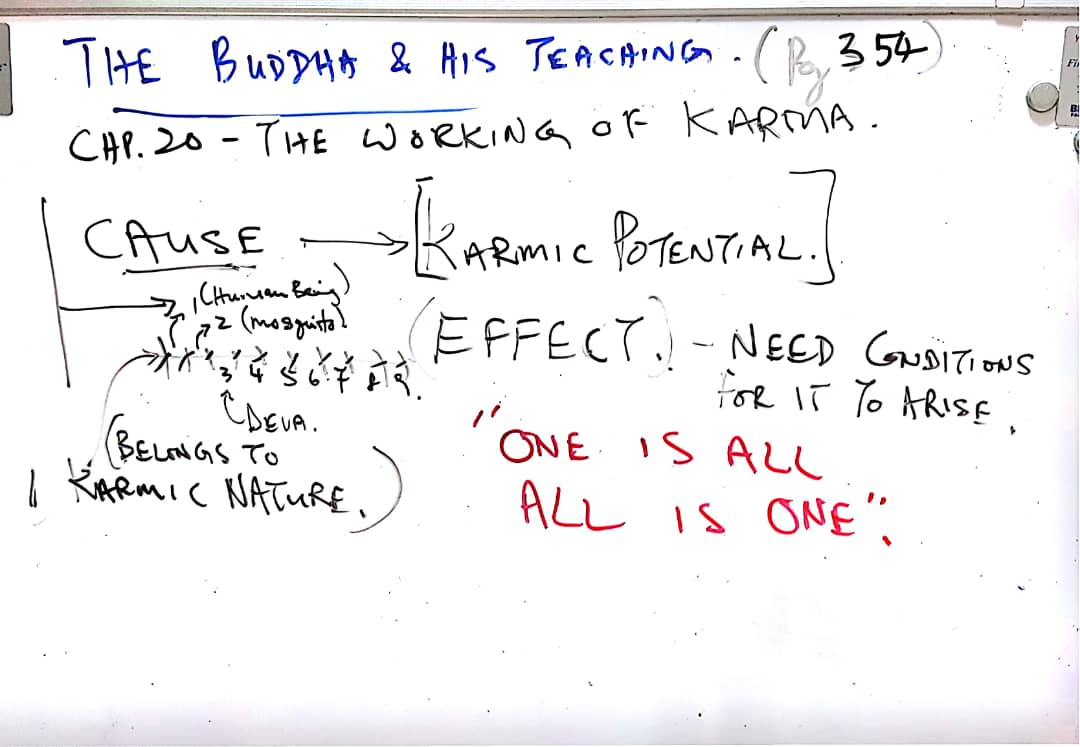 THE BUDDHA & HIS TEACHING. (Pg 354)
CHP. 20 - THE WORKING OF KARMA.
CAUSE → [KARMIC POTENTIAL.]
1 (Human Being)
2 (mosquito)
3 4 5 6 7 8 9.
(EFFECT.) - NEED CONDITIONS
FOR IT TO ARISE.
DEVA.
(BELONGS TO
KARMIC NATURE.)
"ONE IS ALL
ALL IS ONE".